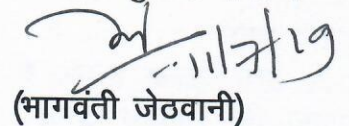 11/7/19
(भागवंती जेठवानी)